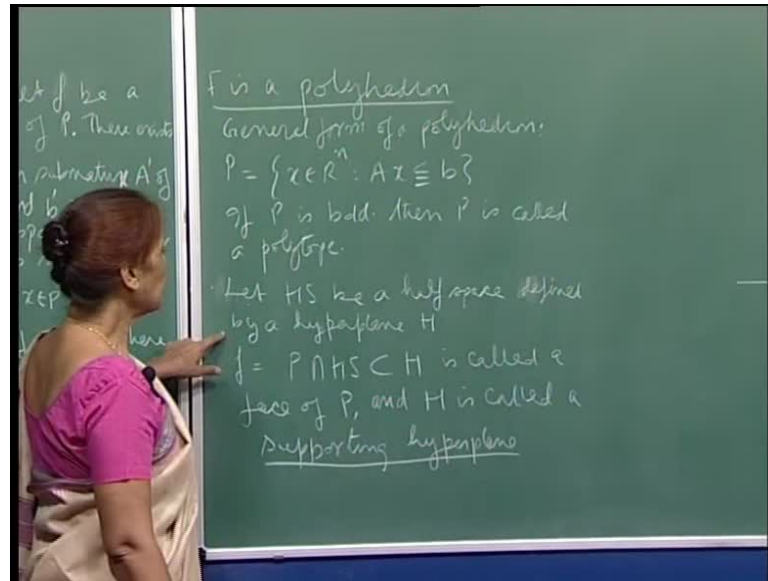 et f be a
of P. There exists
submatrix A' of
nd b'
x∈P
here
F is a polyhedron
General form of a polyhedron:
P = {x∈R^n : Ax ≦ b}
If P is bdd. then P is called
a polytope.
Let HS be a half space defined
by a hyperplane H
f = P∩HS ⊂ H is called a
face of P, and H is called a
supporting hyperplane